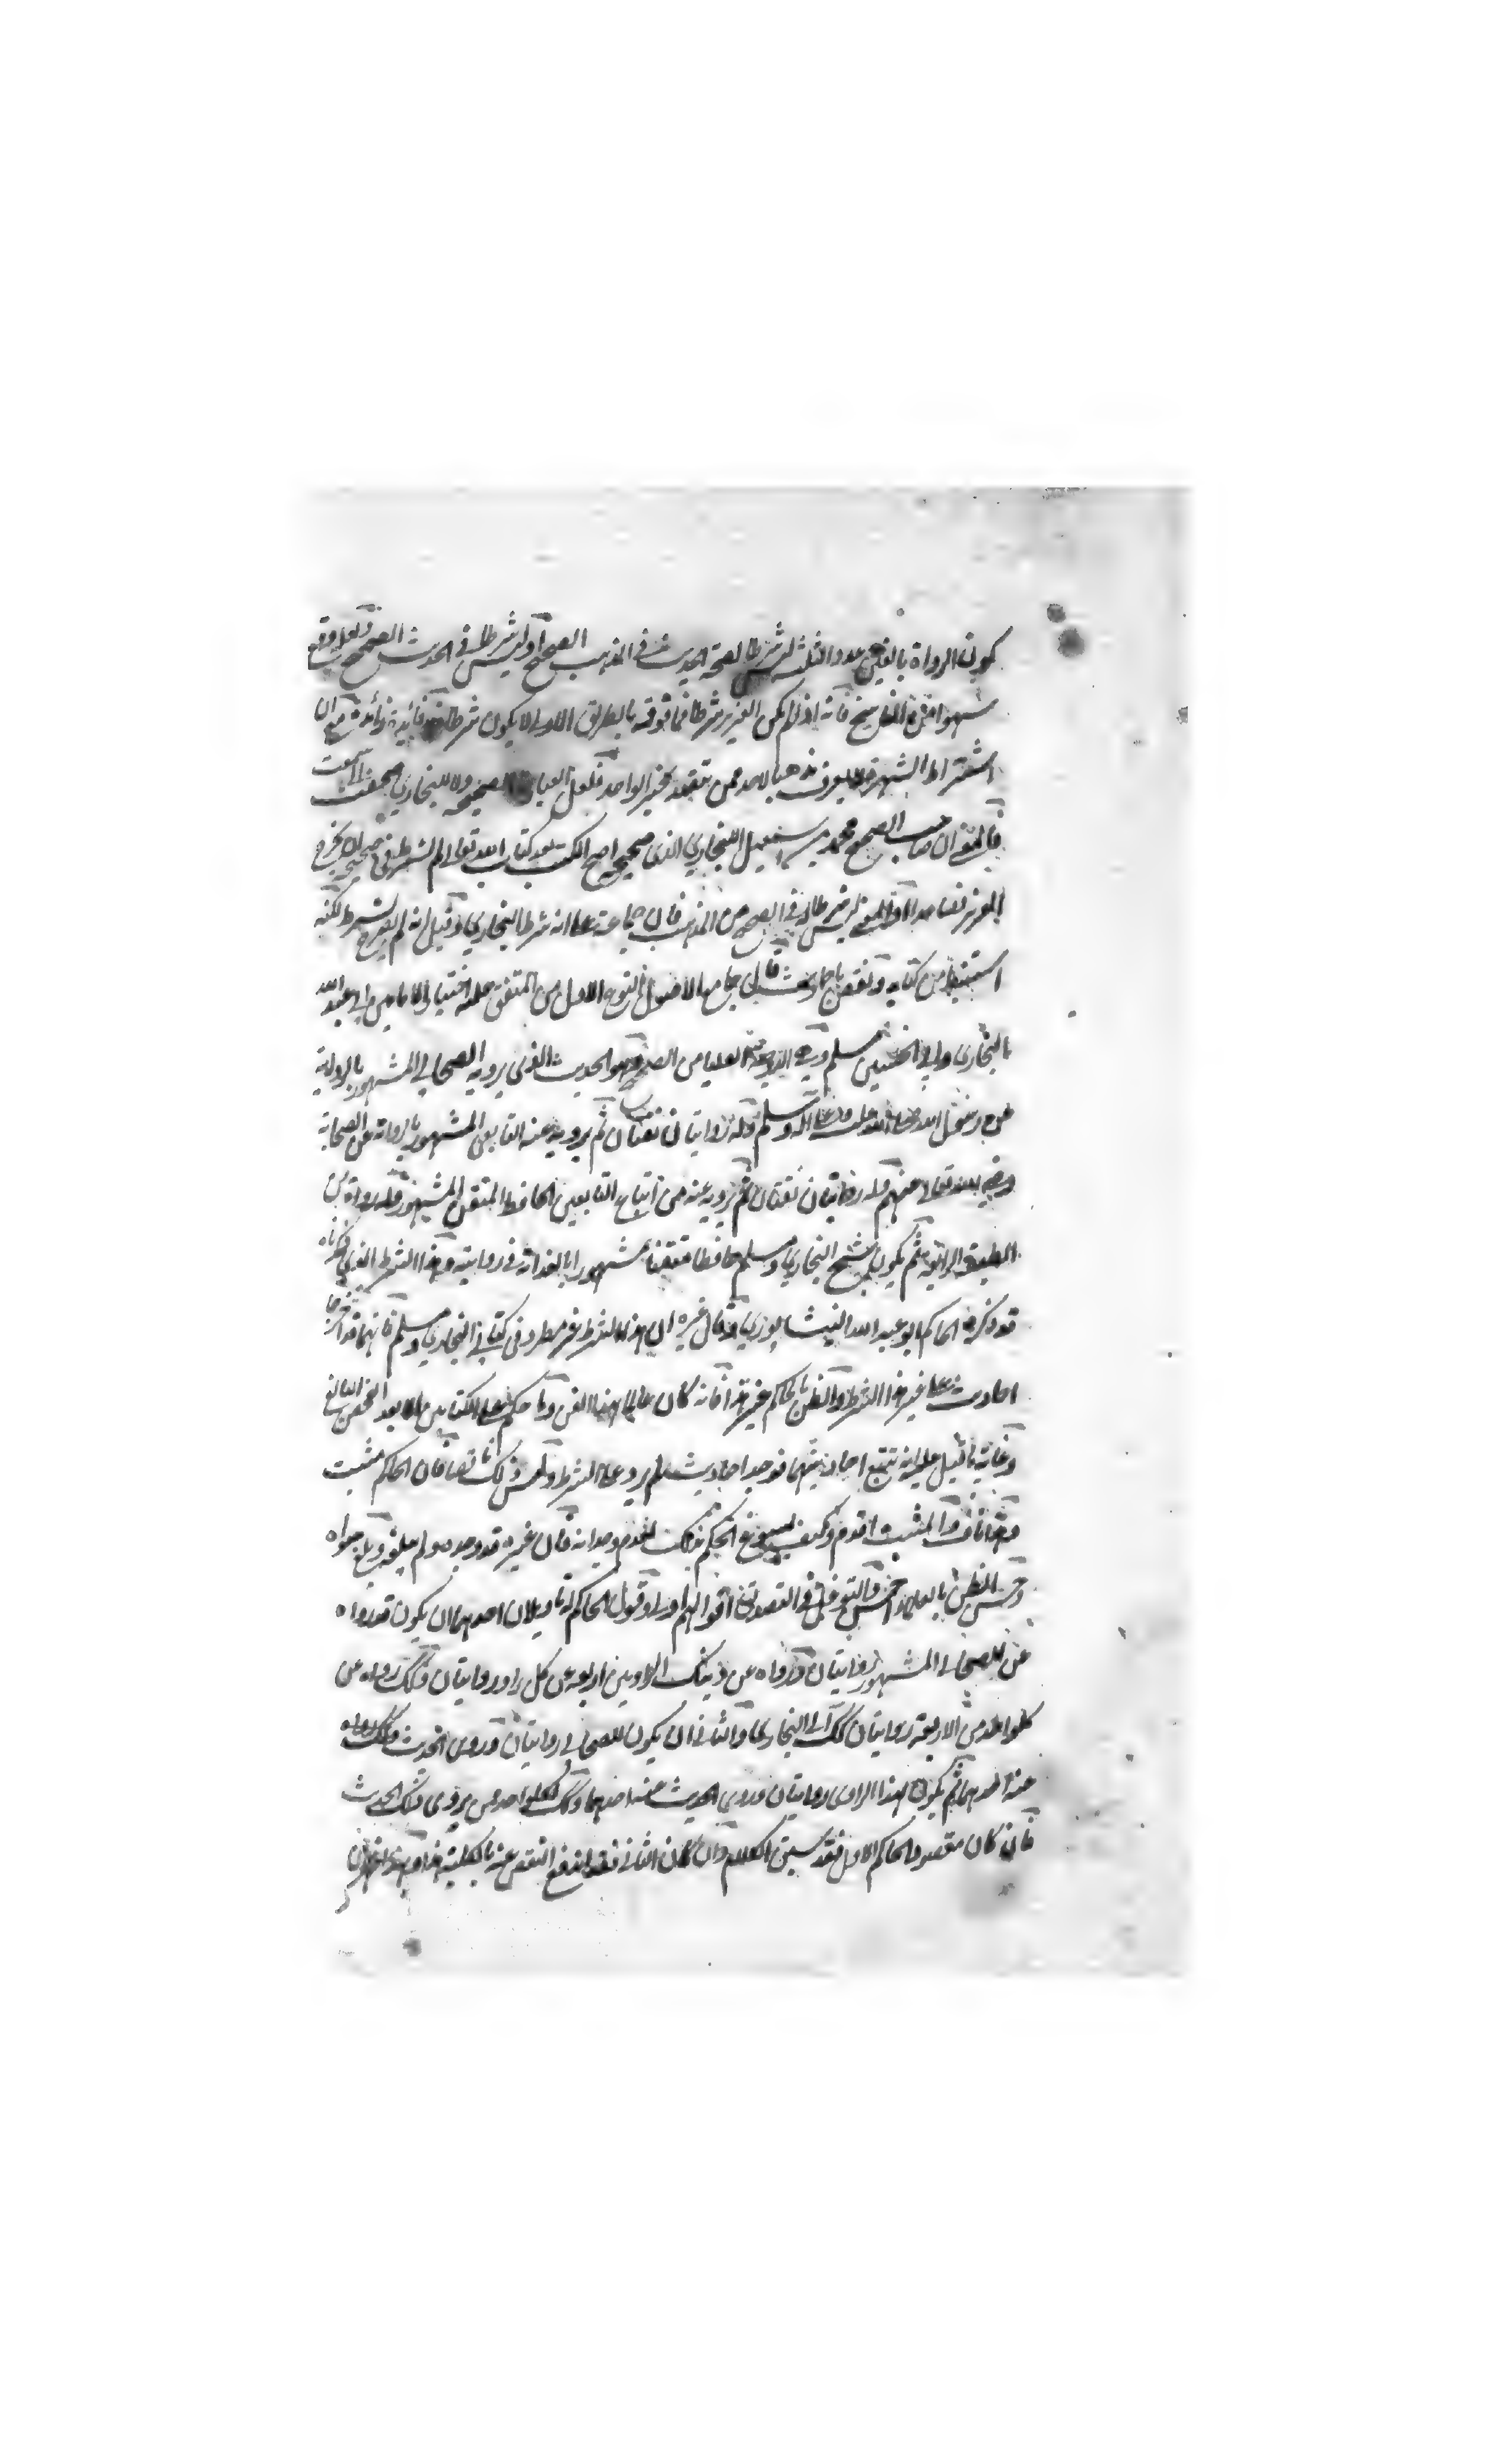 كون الرواة بالغين عدد الثلثة ليس شرطا لصحة الحديث في المذهب الصحيح او ليس شرطا في الحديث الصحيح ولعله وقع
سهوا من الناسخ فانه اذا لم يكن العزيز شرطا فما فوقه بالطريق الاولى لا يكون شرطا فائدة زائدة مع ان
اشتراط الشهرة لا يعرف مذهبا لاحد ممن يعتقد بخبر الواحد فلعل العبارة الصحيحة ولا للبخاري
فالمعنى ان صاحب الصحيح محمد بن اسمعيل البخاري الذي صحيحه اصح الكتب بعد كتاب الله تعالى لم يشترط في صحيحه ان يخرج
العزيز فصاعدا او المعنى ليس شرطا له في الصحيح من المذهب فان جماعة على انه شرط البخاري وقيل انه لم يصرح بشرط لكنه
استنبط من كتابه ونقض باحاديث قال في جامع الاصول النوع الاول من المتفق عليه اختيار الامامين ابي عبد الله
البخاري وابي الحسين مسلم وهي الدرجة العليا من الصحيح وهو الحديث الذي يرويه الصحابي المشهور بالرواية
عن رسول الله صلى الله عليه وعلى آله وسلم وله راويتان ثقتان ثم يرويه عنه التابعي المشهور بالرواية عن الصحابة
رضي الله تعالى عنهم وله راويتان ثقتان ثم يرويه عنه من اتباع التابعين الحافظ المتقن المشهور وله رواة من
الطبقة الرابعة ثم يكون شيخ البخاري ومسلم حافظا متقنا مشهورا بالعدالة في روايته وهذا الشرط الذي ذكرناه
قد ذكره الحاكم ابو عبد الله النيشابوري وقال غيره ان هذا الشرط غير مطرد في كتابي البخاري ومسلم فانهما قد اخرجا
احاديث على غير هذا الشرط والظن بالحاكم غير هذا فانه كان عالما بهذا الفن وما حكم على الكتابين الا بعد الفحص البالغ
وغاية ما قيل عليه انه تتبع احاديثهما فوجد احاديث لم يرد على الشرط وليس ذلك ناقضا فان الحاكم مثبت
وهذا ناف والمثبت اقدم وكيف يسوغ الحكم بذلك لعدم وجدانه فان غيره قد وجده ولم يبلغه وبلغ سواه
وحسن الظن بالعلماء احسن والتوفيق في التصديق اقوالهم اولى وقول الحاكم له تاويلان احدهما ان يكون قد رواه
عن الصحابي المشهور راويتان ورواه عن ذينك الراويين اربعة عن كل راو راويتان وكذلك رواه عن
كل واحد من الاربعة راويتان كذلك الى البخاري والثاني ان يكون للصحابي راويتان وروى الحديث
عنه احدهما ثم يكون لهذا الراوي راويتان وروى الحديث عنه احدهما وكذلك لكل واحد من يروي ذلك الحديث
فان كان مقصود الحاكم الاول فقد سبق الكلام وان كان الثاني فقد اندفع النقض عنه بالكلية